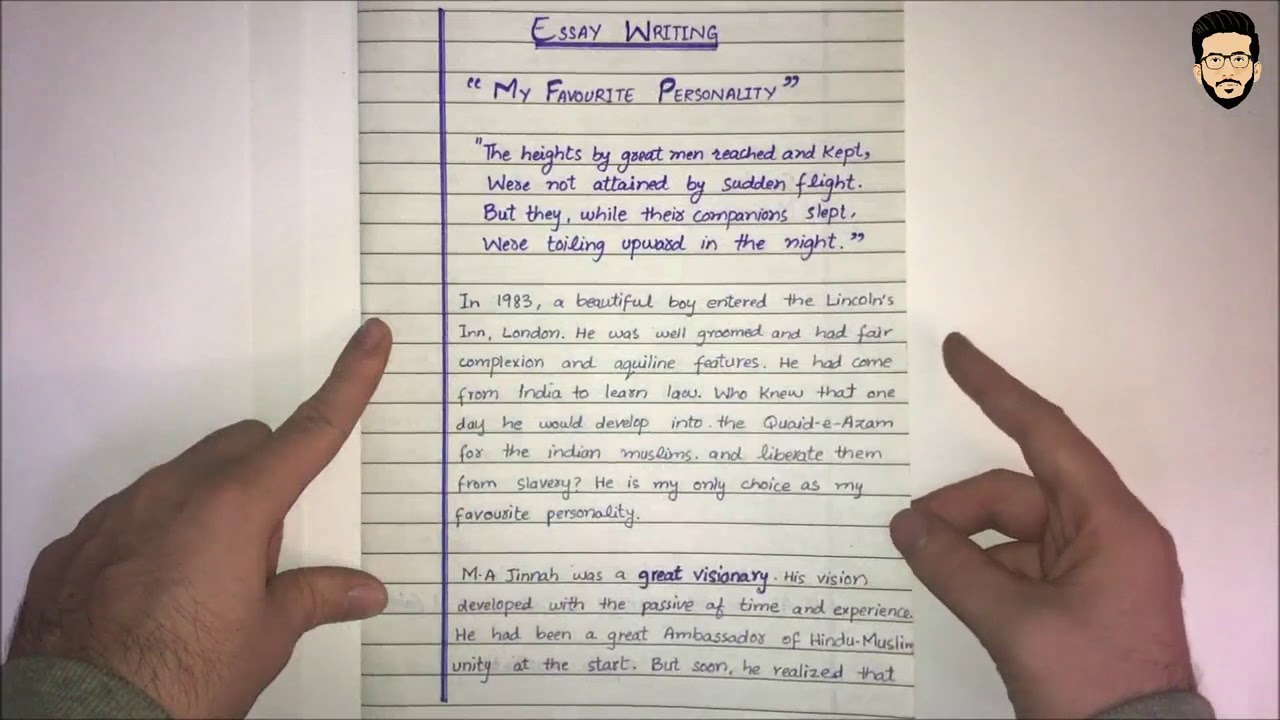 ESSAY WRITING
“ MY FAVOURITE PERSONALITY ”
"The heights by great men reached and kept,
Were not attained by sudden flight.
But they, while their companions slept,
Were toiling upward in the night.”
In 1983, a beautiful boy entered the Lincoln's
Inn, London. He was well groomed and had fair
complexion and aquiline features. He had come
from India to learn law. Who knew that one
day he would develop into the Quaid-e-Azam
for the indian muslims. and liberate them
from slavery? He is my only choice as my
favourite personality.
M.A Jinnah was a great visionary. His vision
developed with the passive of time and experience.
He had been a great Ambassador of Hindu-Muslim
unity at the start. But soon, he realized that